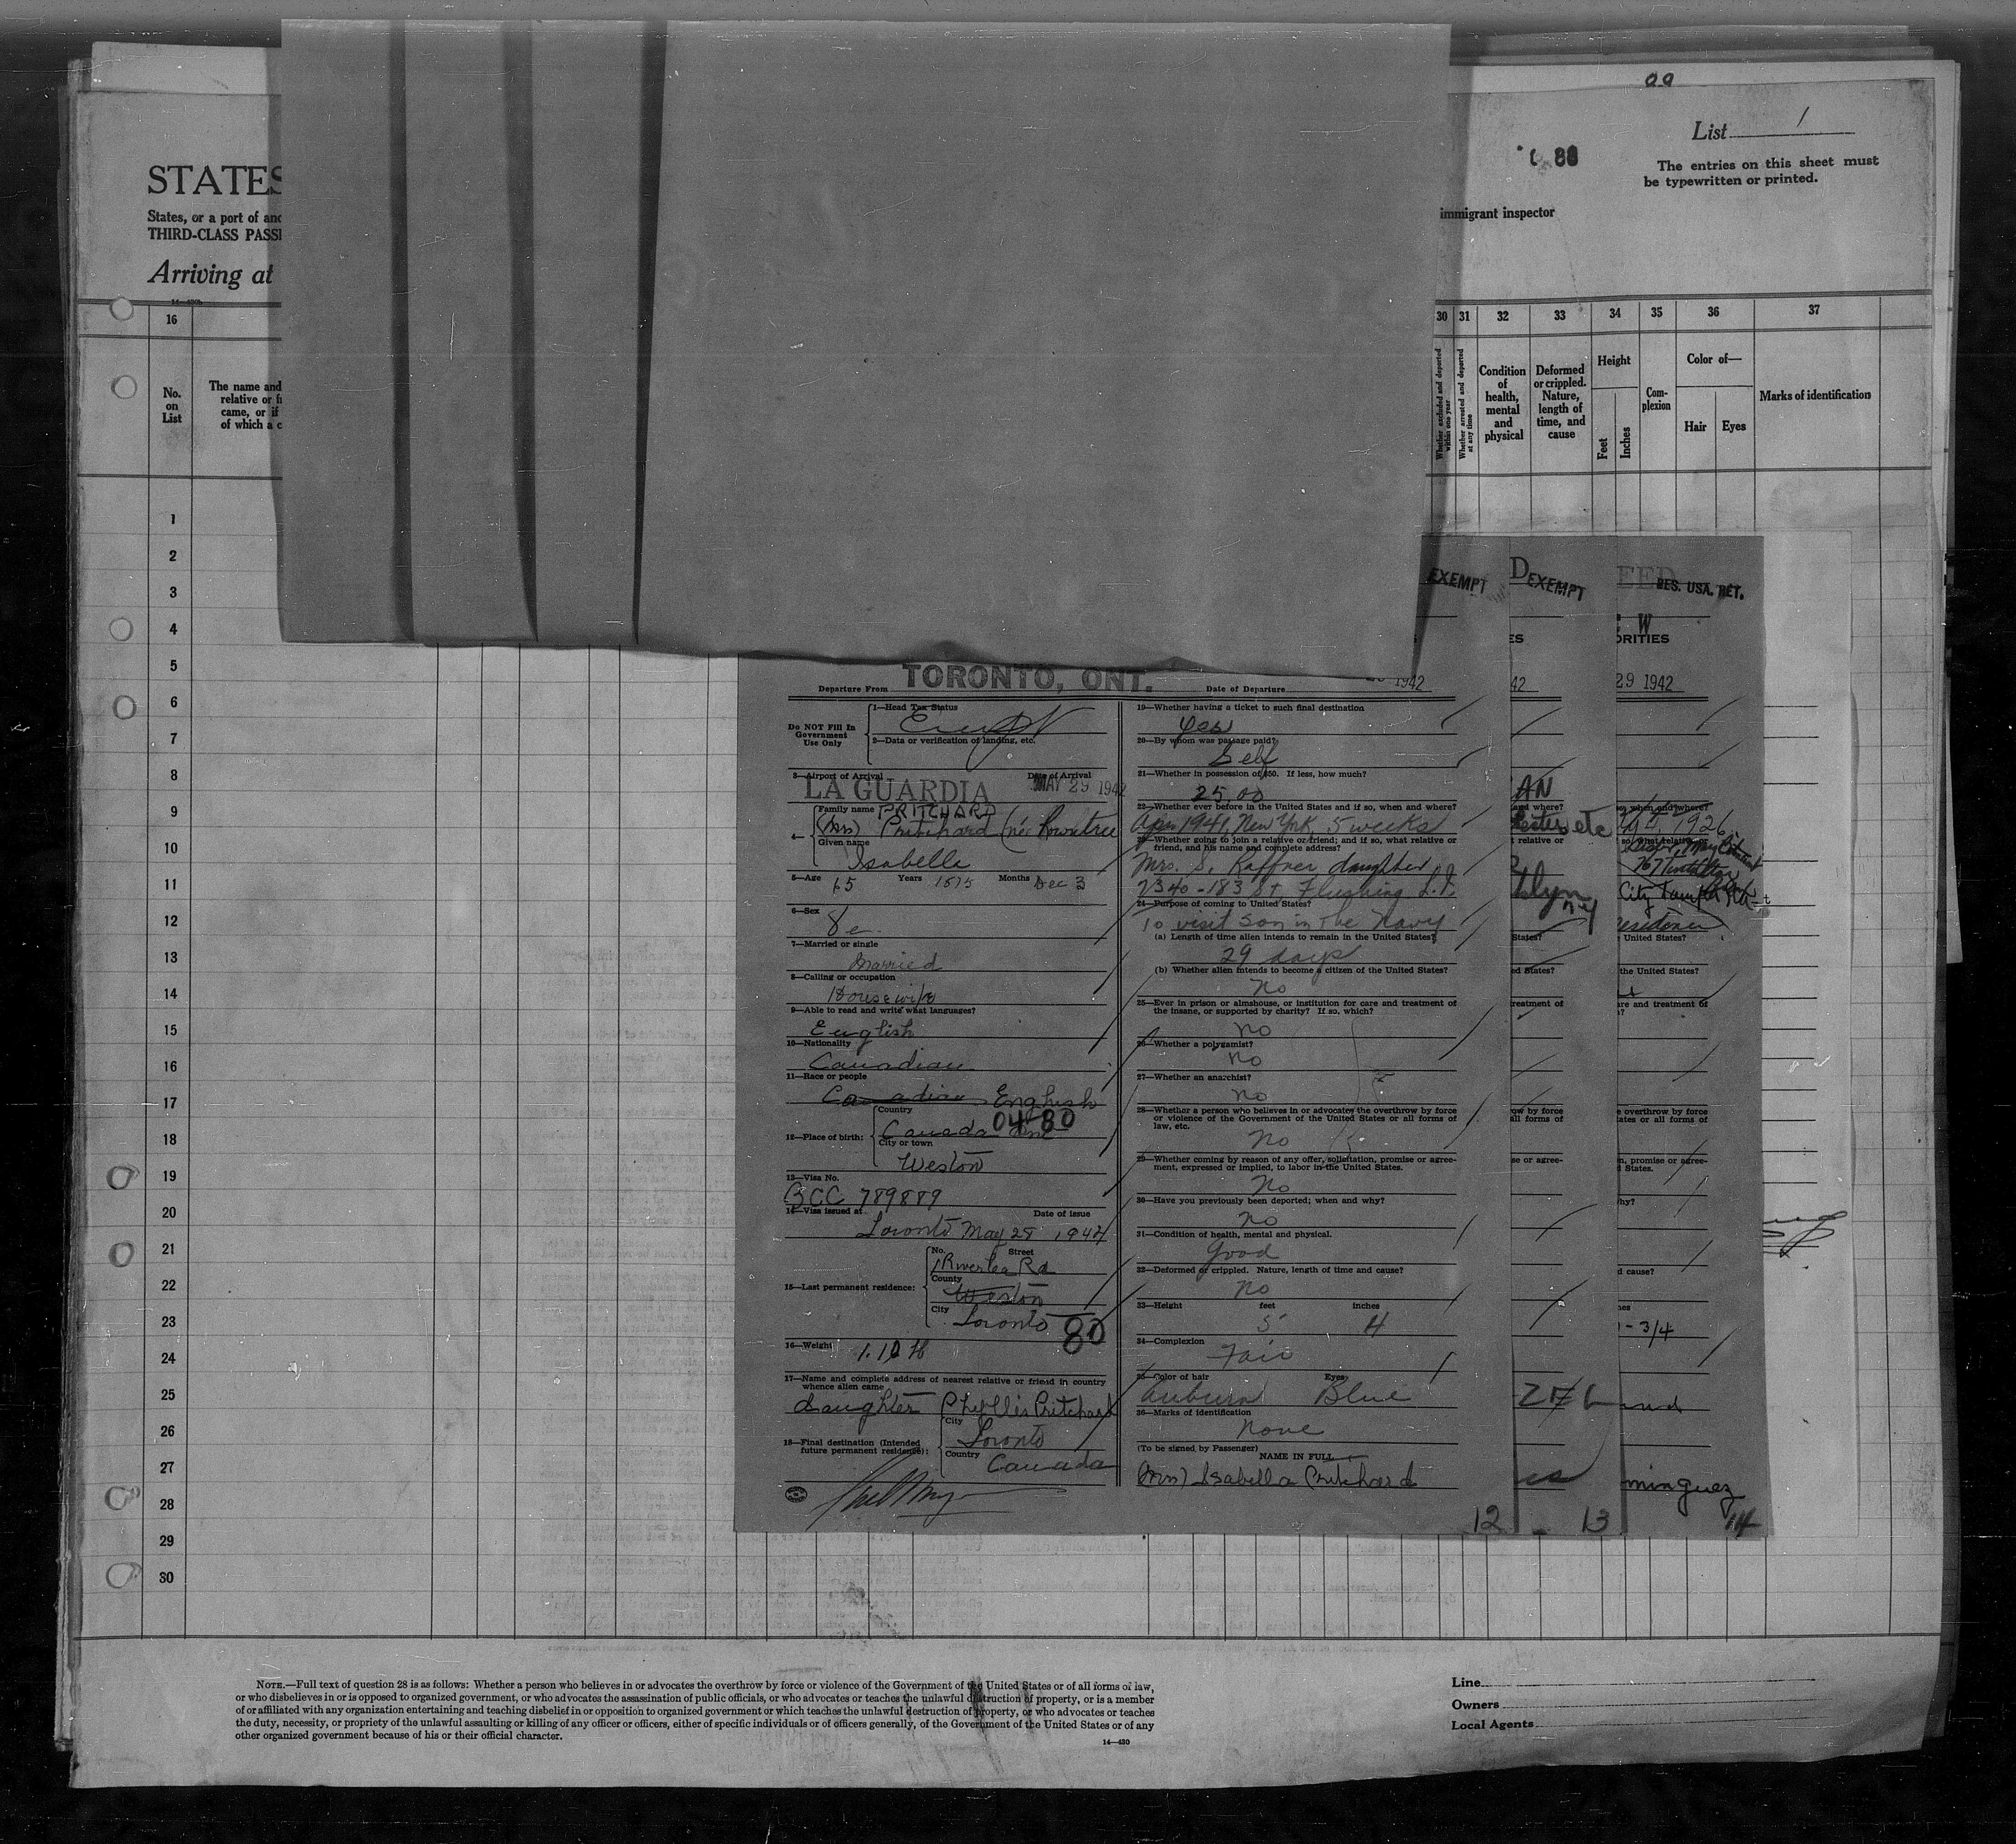 99
List 1
88
The entries on this sheet must
be typewritten or printed.
STATES
States, or a port of
THIRD-CLASS
Arriving at
immigrant inspector
16
30 31 32 33 34 35 36 37
No.
on
List
The name and
relative or
came, or if
of which a
Whether excluded and deported within one year
Whether arrested and deported at any time
Condition
of
health,
mental
and
physical
Deformed
or crippled.
Nature,
length of
time, and
cause
Height
Feet
Inches
Com-
plexion
Color of—
Hair Eyes
Marks of identification
1
2
3
4
5
6
7
8
9
10
11
12
13
14
15
16
17
18
19
20
21
22
23
24
25
26
27
28
29
30
Departure From TORONTO, ONT.
Date of Departure 1942
Do NOT Fill In
Government
Use Only
1—Head Tax Status
2—Data or verification of landing, etc.
3—Airport of Arrival Date of Arrival
LA GUARDIA MAY 29 1942
4— Family name PRITCHARD
(Mrs) Pritchard (née Rowntree
Given name
Isabella
5—Age 65 Years 1875 Months Dec 3
6—Sex
7—Married or single
Married
8—Calling or occupation
Housewife
9—Able to read and write what languages?
English
10—Nationality
Canadian
11—Race or people
Canadian English
12—Place of birth: Country 04-80
Canada Ont
City or town
Weston
13—Visa No.
BCC 789889
14—Visa issued at Date of issue
Toronto May 28 1942
15—Last permanent residence: No. Street
1 Riverlea Rd
County
Weston
City
Toronto 80
16—Weight
17—Name and complete address of nearest relative or friend in country
whence alien came
daughter Phyllis Pritchard
18—Final destination (Intended
future permanent residence): City
Toronto
Country
Canada
19—Whether having a ticket to such final destination
Yes
20—By whom was passage paid?
Self
21—Whether in possession of $50. If less, how much?
25.00
22—Whether ever before in the United States and if so, when and where?
Apr 1941, New York, 5 weeks
23—Whether going to join a relative or friend; and if so, what relative or
friend, and his name and complete address?
Mrs. S. Kaffner daughter
2340-183 St Flushing L.I.
24—Purpose of coming to United States?
To visit son in the Navy
(a) Length of time alien intends to remain in the United States?
29 days
(b) Whether alien intends to become a citizen of the United States?
no
25—Ever in prison or almshouse, or institution for care and treatment of
the insane, or supported by charity? If so, which?
no
26—Whether a polygamist?
no
27—Whether an anarchist?
no
28—Whether a person who believes in or advocates the overthrow by force
or violence of the Government of the United States or all forms of
law, etc.
no
29—Whether coming by reason of any offer, solicitation, promise or agree-
ment, expressed or implied, to labor in the United States.
No
30—Have you previously been deported; when and why?
no
31—Condition of health, mental and physical.
Good
32—Deformed or crippled. Nature, length of time and cause?
no
33—Height feet inches
5 4
34—Complexion
Fair
35—Color of hair Eyes
Auburn Blue
36—Marks of identification
None
(To be signed by Passenger)
NAME IN FULL
(Mrs) Isabella Pritchard
12
EXEMPT
D EXEMPT
42
AN
13
RES. USA. RET.
W
29 1942
1926
- 3/4
minguez
14
NOTE.—Full text of question 28 is as follows: Whether a person who believes in or advocates the overthrow by force or violence of the Government of the United States or of all forms of law,
or who disbelieves in or is opposed to organized government, or who advocates the assassination of public officials, or who advocates or teaches the unlawful destruction of property, or is a member
of or affiliated with any organization entertaining and teaching disbelief in or opposition to organized government or which teaches the unlawful destruction of property, or who advocates or teaches
the duty, necessity, or propriety of the unlawful assaulting or killing of any officer or officers, either of specific individuals or of officers generally, of the Government of the United States or of any
other organized government because of his or their official character.
14—430
Line
Owners
Local Agents